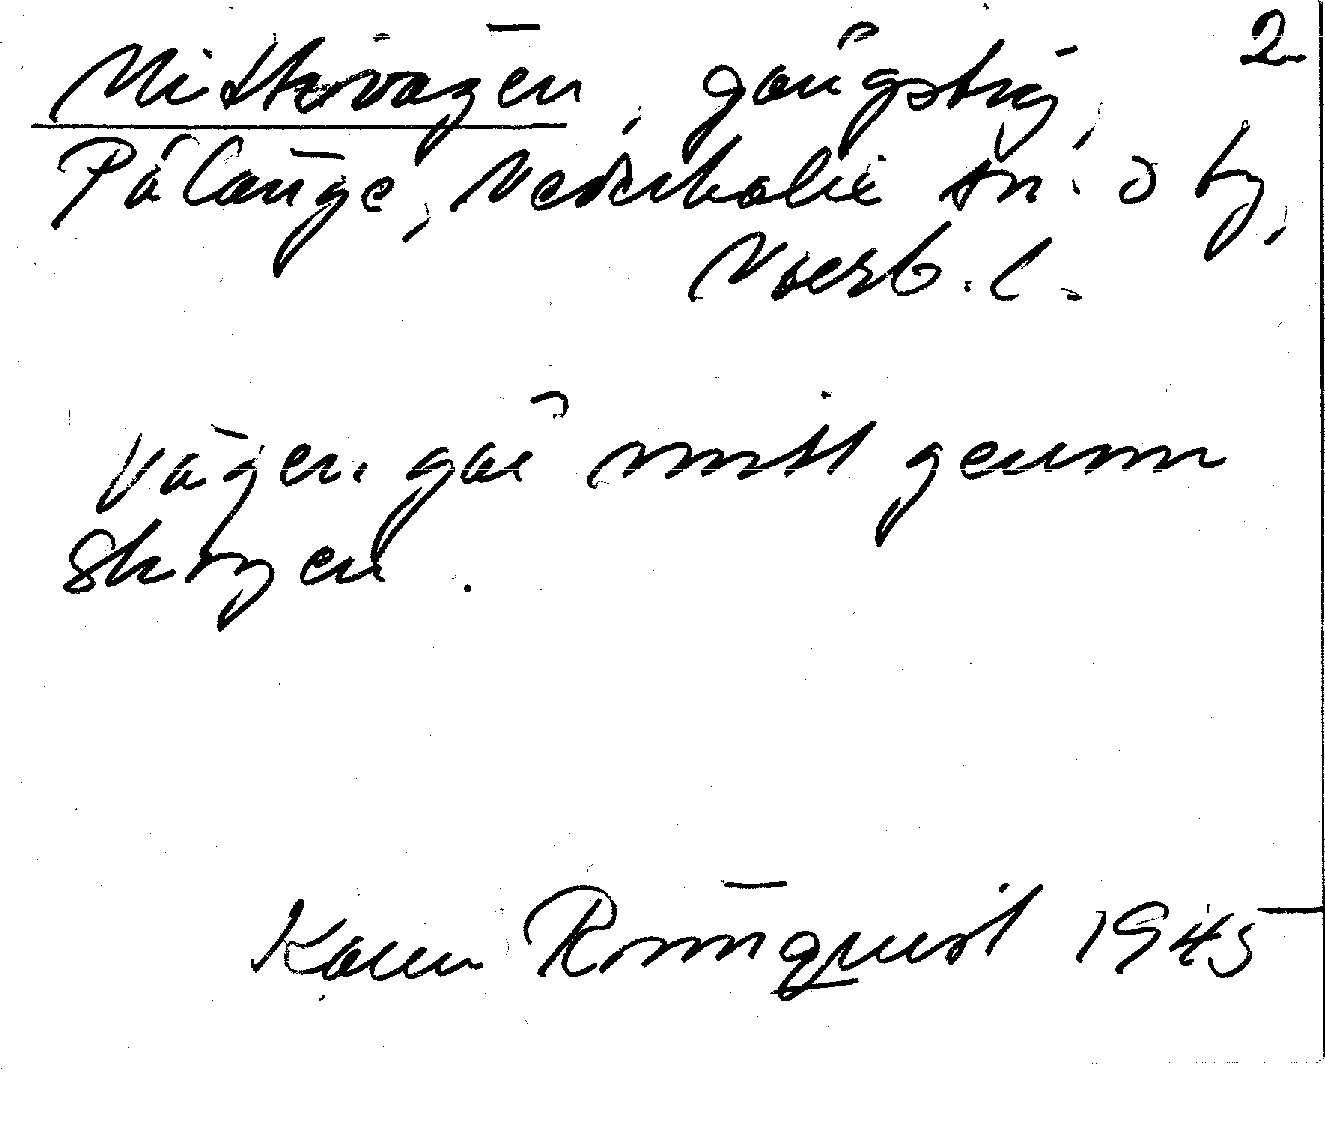 2
Mittivägen, gångstig,
Pålänge, Nederkalix sn. o by,
Norrb. l.
Vägen går mitt genom
skogen.
Karin Rönnquist 1945